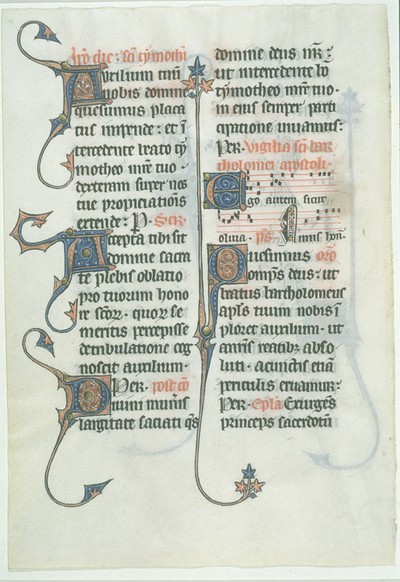 Auxilium tuum
nobis domine
quesumus placa
tus impende: et i
tercedente beato ty
motheo mr̄e tuo
dexteram super nos
tue propiciationis
extende: P. Secr
Accepta tibi sit
domine sacra
te plebis oblatio
pro tuorum hono
re scōr. quor se
meritis percepisse
de tribulatione cog
noscit auxilium.
Per. post cō
mini muneris
largitate saciati q̄s
domine deus nr̄:
ut intercedente bo
tymotheo mr̄e tuo.
in eius semper parti
cipatione vivamus:
Per. Vigilia scī bar
tholomei apostoli.
Ego autem sicut
oliva. ps.
Quesumus oro
omps deus: ut
beatus bartholomeus
apl's tuus nobis i
ploret auxilium. ut
a nr̄is reatibz abso
luti. a cunctis etiā
periculis eruamur:
Per. Epla Exurgēs
princeps sacerdotū